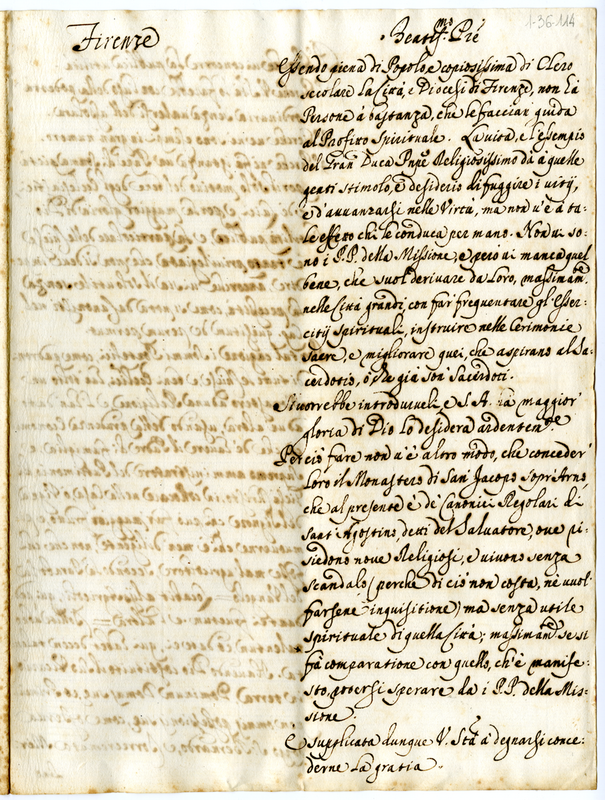 1-36-114
Firenze
Beatis.mo Pre
Essendo piena di Popolo, e copiosissima di Clero
secolare la Città, e Diocesi di Firenze, non hà
Persone à bastanza, che le faccian guida
al Profitto Spirituale. La vita, e l'esempio
del Gran Duca Pnpe Religiosissimo dà à quelle
genti stimolo, e desiderio di fuggire i vitij,
e d'avvanzarsi nelle Virtù, ma non v'è à ta-
le effetto chi le conduca per mano. Non vi so-
no i P.P. della Missione, e però vi manca quel
bene, che suol derivare da loro, massimam.te
nelle Città grandi, con far frequentare gl'Esser-
citij Spirituali, instruire nelle Cerimonie
Sacre, e migliorare quei, che aspirano al Sa-
cerdotio, ò che già son Sacerdoti.
Si vorrebbe introdurveli, e S.A. à maggior
gloria di Dio lo desidera ardenten.te
Perciò fare non v'è altro modo, che conceder
loro il Monastero di San Jacopo sopr'Arno,
che al presente è de Canonici Regolari di
Sant'Agostino, detti del Salvatore, ove ri-
siedono nove Religiosi, e vivono senza
scandalo (perche di ciò non costa, nè vuol
farsene inquisitione) ma senza utile
spirituale di quella Città; massimam.te se si
fà comparatione con quello, ch'è manife-
sto, potersi sperare da i P.P. della Mis-
sione.
È supplicata dunque V. S.tà à degnarsi conce-
derne la gratia.